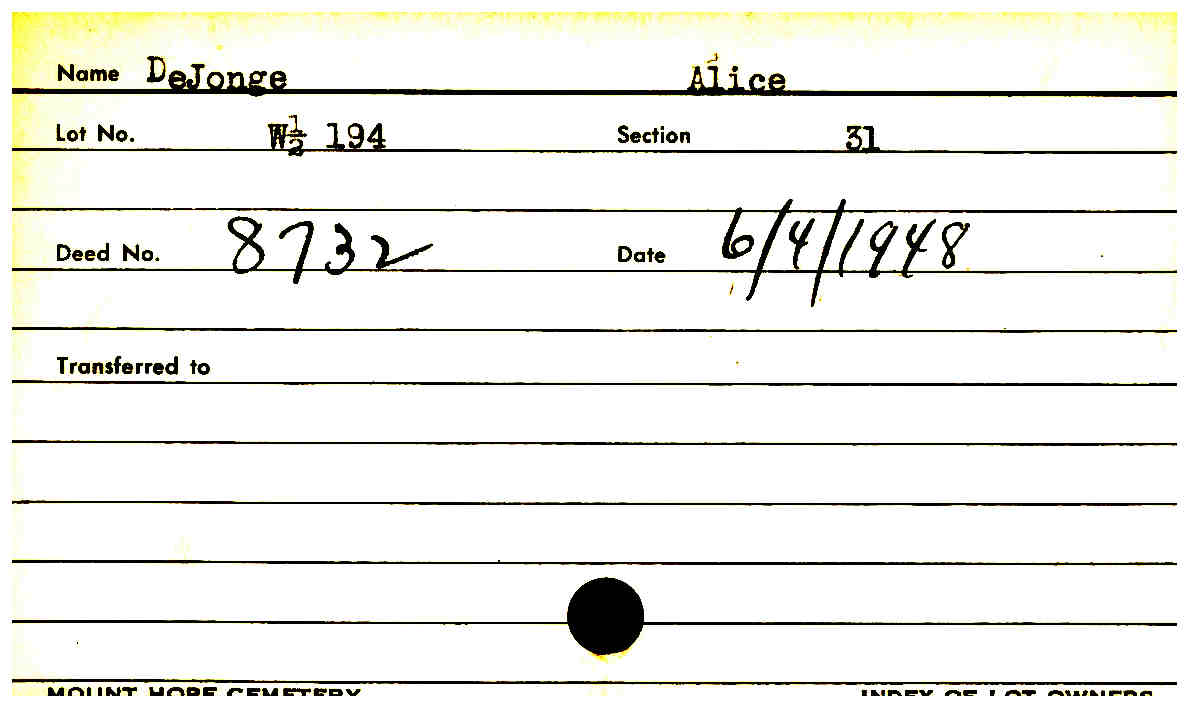 Name DeJonge Alice
Lot No. W½ 194 Section 31
Deed No. 8732 Date 6/4/1948
Transferred to
MOUNT HOPE CEMETERY INDEX OF LOT OWNERS